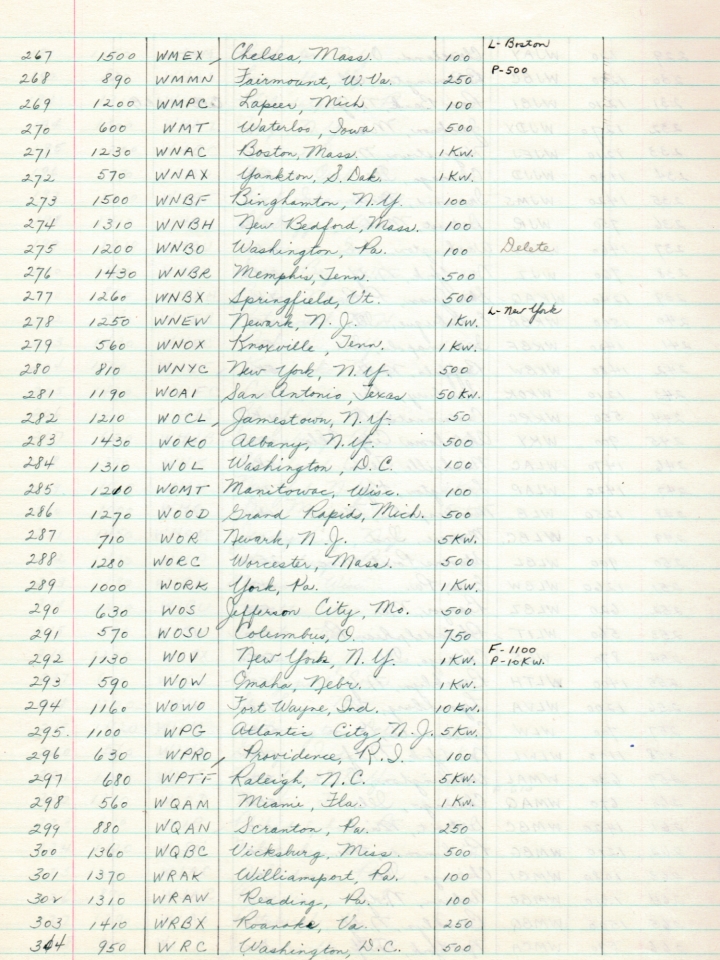 267 1500 WMEX, Chelsea, Mass. 100 L-Boston
268 890 WMMN Fairmount, W. Va. 250 P-500
269 1200 WMPC Lapeer, Mich. 100
270 600 WMT Waterloo, Iowa 500
271 1230 WNAC Boston, Mass. 1 KW.
272 570 WNAX Yankton, S. Dak. 1 KW.
273 1500 WNBF Binghamton, N.Y. 100
274 1310 WNBH New Bedford, Mass. 100
275 1200 WNBO Washington, Pa. 100 Delete
276 1430 WNBR Memphis, Tenn. 500
277 1260 WNBX Springfield, Vt. 500
278 1250 WNEW Newark, N.J. 1 KW. L-New York
279 560 WNOX Knoxville, Tenn. 1 KW.
280 810 WNYC New York, N.Y. 500
281 1190 WOAI San Antonio, Texas 50 KW.
282 1210 WOCL, Jamestown, N.Y. 50
283 1430 WOKO Albany, N.Y. 500
284 1310 WOL Washington, D.C. 100
285 1210 WOMT Manitowoc, Wisc. 100
286 1270 WOOD Grand Rapids, Mich. 500
287 710 WOR Newark, N.J. 5 KW.
288 1280 WORC Worcester, Mass. 500
289 1000 WORK York, Pa. 1 KW.
290 630 WOS Jefferson City, Mo. 500
291 570 WOSU Columbus, O. 750
292 1130 WOV New York, N.Y. 1 KW. F-1100 P-10 KW.
293 590 WOW Omaha, Nebr. 1 KW.
294 1160 WOWO Fort Wayne, Ind. 10 KW.
295. 1100 WPG Atlantic City, N.J. 5 KW.
296 630 WPRO, Providence, R.I. 100
297 680 WPTF Raleigh, N.C. 5 KW.
298 560 WQAM Miami, Fla. 1 KW.
299 880 WQAN Scranton, Pa. 250
300 1360 WQBC Vicksburg, Miss. 500
301 1370 WRAK Williamsport, Pa. 100
302 1310 WRAW Reading, Pa. 100
303 1410 WRBX Roanoke, Va. 250
304 950 WRC Washington, D.C. 500